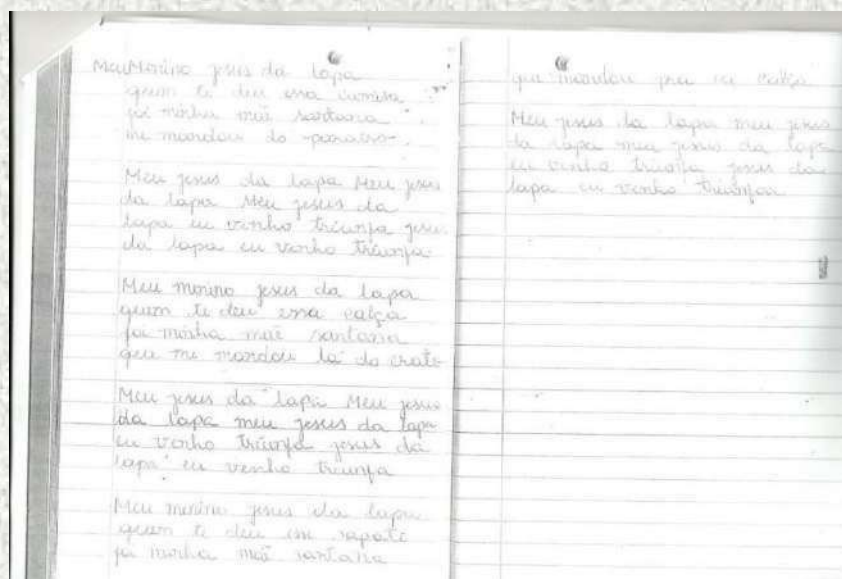 Meu Menino jesus da lapa
quem te deu essa camisa
foi minha mãe santana
me mandou do
Meu jesus da lapa Meu jesus
da lapa Meu jesus da
lapa eu venho triunfa jesus
da lapa eu venho triunfa
Meu menino jesus da lapa
quem te deu essa calça
foi minha mãe santana
que me mandou lá do crato
Meu jesus da lapa Meu jesus
da lapa meu jesus da lapa
eu venho triunfa jesus da
lapa eu venho triunfa
Meu menino jesus da lapa
quem te deu esse sapato
foi minha mãe santana
que mandou pra eu calça
Meu jesus da lapa meu jesus
da lapa meu jesus da lapa
eu venho triunfa jesus da
lapa eu venho triunfa